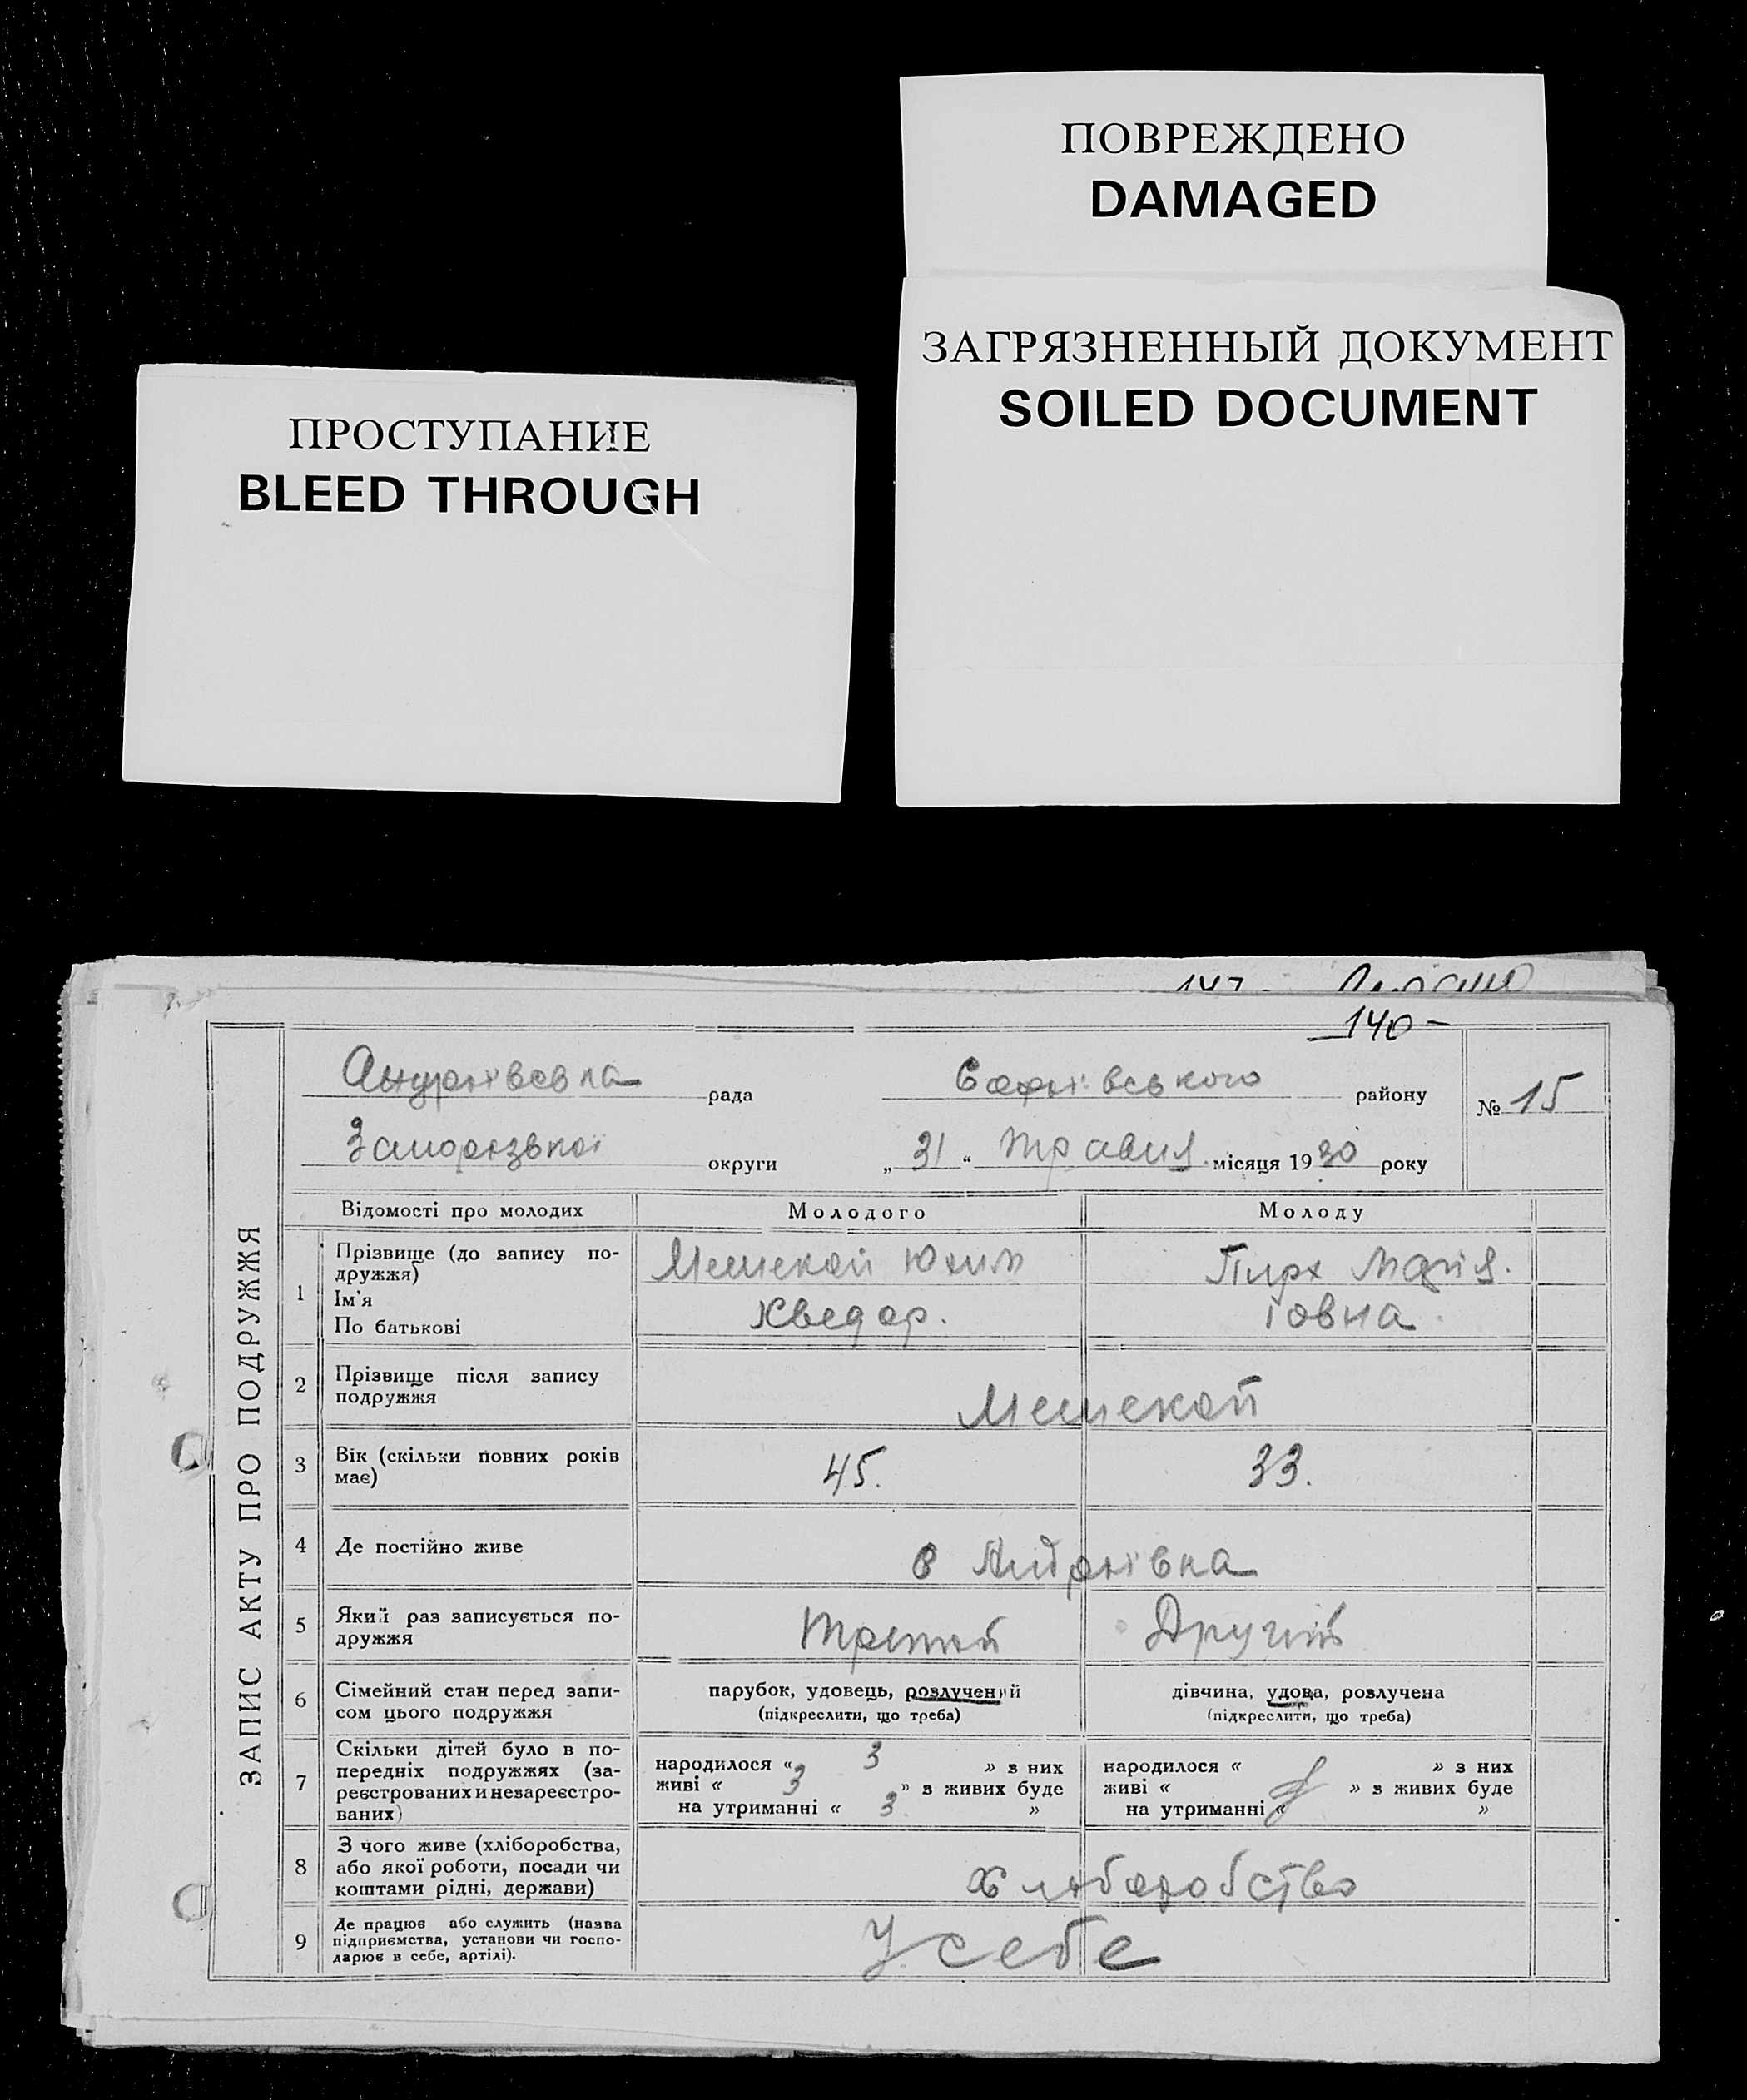 ПОВРЕЖДЕНО
DAMAGED
ЗАГРЯЗНЕННЫЙ ДОКУМЕНТ
SOILED DOCUMENT
ПРОСТУПАНИЕ
BLEED THROUGH
140-
ЗАПИС АКТУ ПРО ПОДРУЖЖЯ
рада
району
№ 15
округи „ 31 “ травня місяця 1930 року
Відомості про молодих Молодого Молоду
1 Прізвище (до запису по-
дружжя)
Ім'я
По батькові
Юхим
Хведор.
Пирх Марія.
Іовна.
2 Прізвище після запису
подружжя
3 Вік (скільки повних років
має)
45. 33.
4 Де постійно живе
5 Який раз записується по-
дружжя
Третий Другий
6 Сімейний стан перед запи-
сом цього подружжя
парубок, удовець, розлучений
(підкреслити, що треба)
дівчина, удова, розлучена
(підкреслити, що треба)
7 Скільки дітей було в по-
передніх подружжях (за-
реєстрованих и незареєстро-
ваних)
народилося « 3 » з них
живі « 3 » з живих буде
на утриманні « 3 »
народилося « » з них
живі « » з живих буде
на утриманні « »
8 З чого живе (хліборобства,
або якої роботи, посади чи
коштами рідні, держави)
9 Де працює або служить (назва
підприємства, установи чи госпо-
дарює в себе, артілі).
У себе